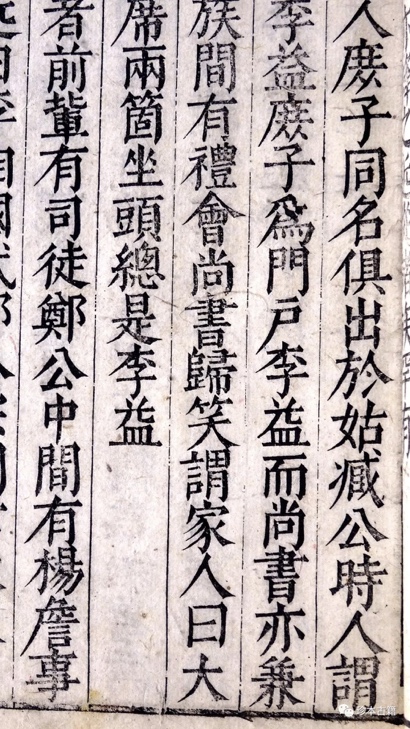 人庶子同名俱出於姑臧公時人謂
李益庶子爲門戶李益而尚書亦兼
族間有禮會尚書歸笑謂家人曰大
席兩箇坐頭總是李益
者前輩有司徒鄭公中間有楊詹事
珍本古籍